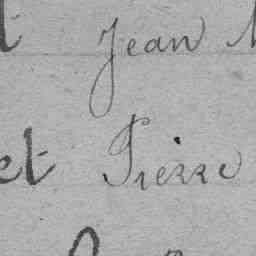 Jean
et Pierre